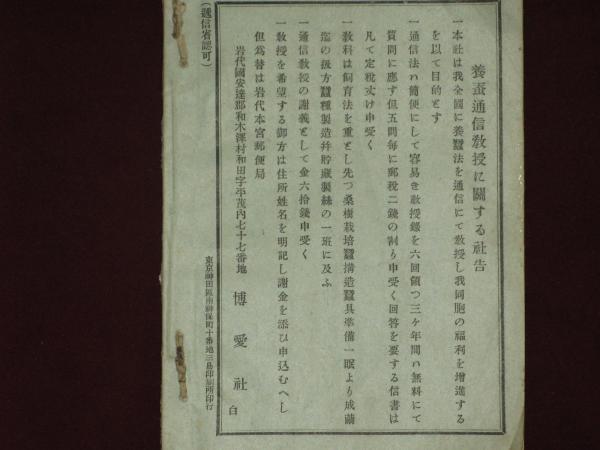 養蚕通信教授に關する社告
一本社は我全國に養蠶法を通信にて教授し我同胞の福利を增進する
を以て目的とす
一通信法ハ簡便にして容易き教授錄を六回領つ三ヶ年間ハ無料にて
質問に應す但五問每に郵税二錢の割り申受く回答を要する信書は
凡て定税丈け申受く
一教科は飼育法を重とし先つ桑樹栽培蠶搆造蠶具準備一眠より成繭
迄の扱方蠶種製造幷貯蔵製絲の一班に及ふ
一通信教授の謝義として金六拾錢申受く
一教授を希望する御方は住所姓名を明記し謝金を添ひ申込むへし
但爲替は岩代本宮郵便局
岩代國安達郡和木澤村和田字平茂内七十七番地
博愛社
白
東京神田區南神保町十番地三島印刷所印行
(遞信省認可)